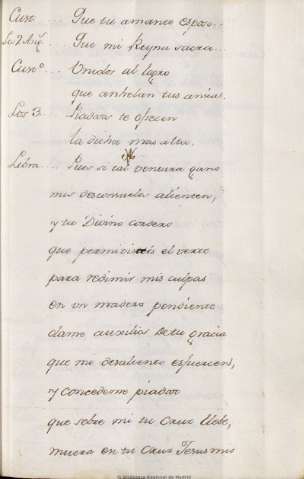 Cur.... Que tu amante Esposo...
Que mi Reyna sacra...
Cur.º... Unidos al logro
que anhelan tus ansias.
Los 3... te ofrecen
la dicha mas alta.
Libra... Pues si tal ventura gano
mis desconsuelos alienten,
y tu Divino cordero
que permitisteis el verte
para redimir mis culpas
en un madero pendiente
dame auxilios de tu gracia
que me desaliento esfuercen,
y concedeme piadoso
que sobre mi tu Cruz lleve,
muera en tu Cruz Jesus mio
Biblioteca Nacional de España